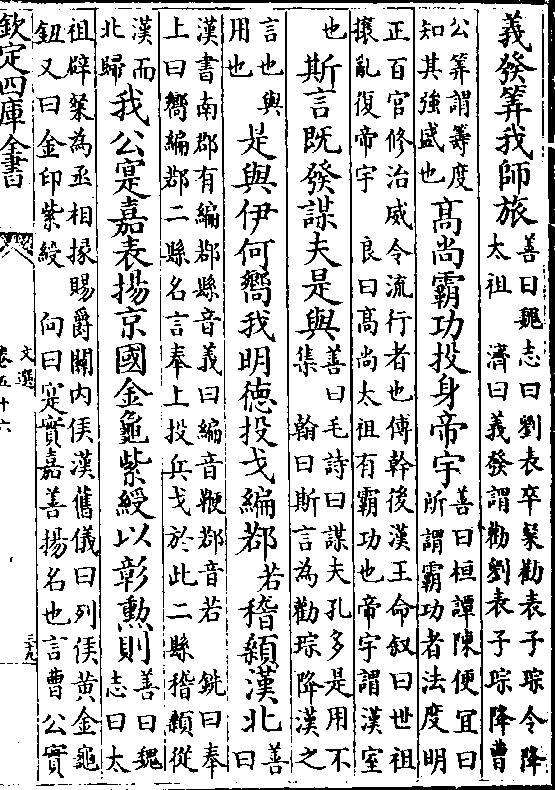 義發筭我師旅善曰魏志曰劉表卒粲勸表子琮令降太祖 濟曰義發謂勸劉表子琮降曹
公筭謂籌度知其強盛也髙尚霸功投身帝宇善曰桓譚陳便宜曰所謂霸功者法度明
正百官修治威令流行者也傅幹後漢王命叙曰世祖
攘亂復帝宇 良曰髙尚太祖有霸功也帝宇謂漢室
也斯言既發謀夫是與善曰毛詩曰謀夫孔多是用不集 翰曰斯言為勸琮降漢之
言也與用也是與伊何嚮我明德投戈編鄀若稽顙漢北善曰
漢書南郡有編鄀縣音義曰編音鞭鄀音若 銑曰奉
上曰嚮編鄀二縣名言奉上投兵戈於此二縣稽顙從
漢而北歸我公寔嘉表揚京國金龜紫綬以彰勲則善曰魏志曰太
祖辟粲為丞相掾賜爵關内侯漢舊儀曰列侯黄金龜
鈕又曰金印紫綬 向曰寔實嘉善揚名也言曹公實
欽定四庫全書
文選
卷五十六